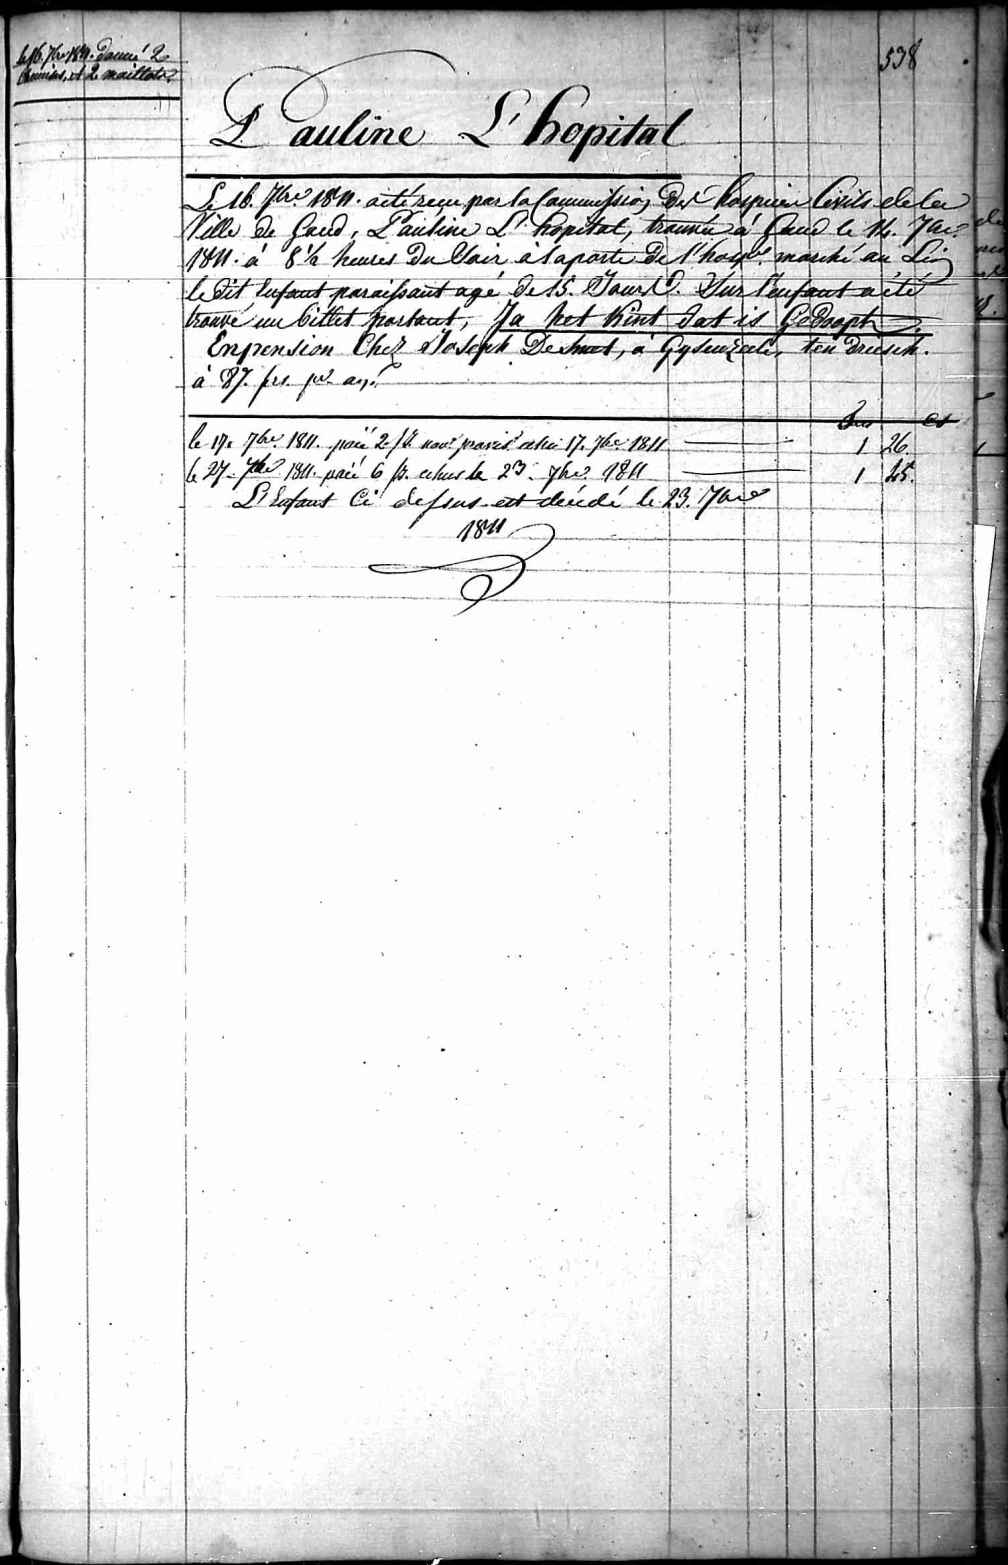 538
le 16. 7bre 1811. donné 2
chemises, et 2 maillots
Pauline L'hopital
Le 16. 7bre 1811. a été reçu par la Commission des hospices Civils de la
Ville de Gand, Pauline L'hopital, trouvée à Gand le 14. 7bre
1811. à 8½ heures du Soir à la porte de l'hospce marché au Lin
le dit Enfant paraissant agé de 15. Jours. Sur l'enfant a été
trouvé un billet portant, Ja het Kint dat is Gedoopt.
En pension Chez Joseph De Smet, à Gysenzeele, ten driesch.
à 87. frs. pr. an.
frs cs
le 17. 7bre 1811. paié 2 js 17. 7bre 1811 1 26.
le 27. 7bre 1811. paié 6 js. echus le 23. 7bre 1811 1 45.
L'Enfant Ci dessus est décédé le 23. 7bre
1811